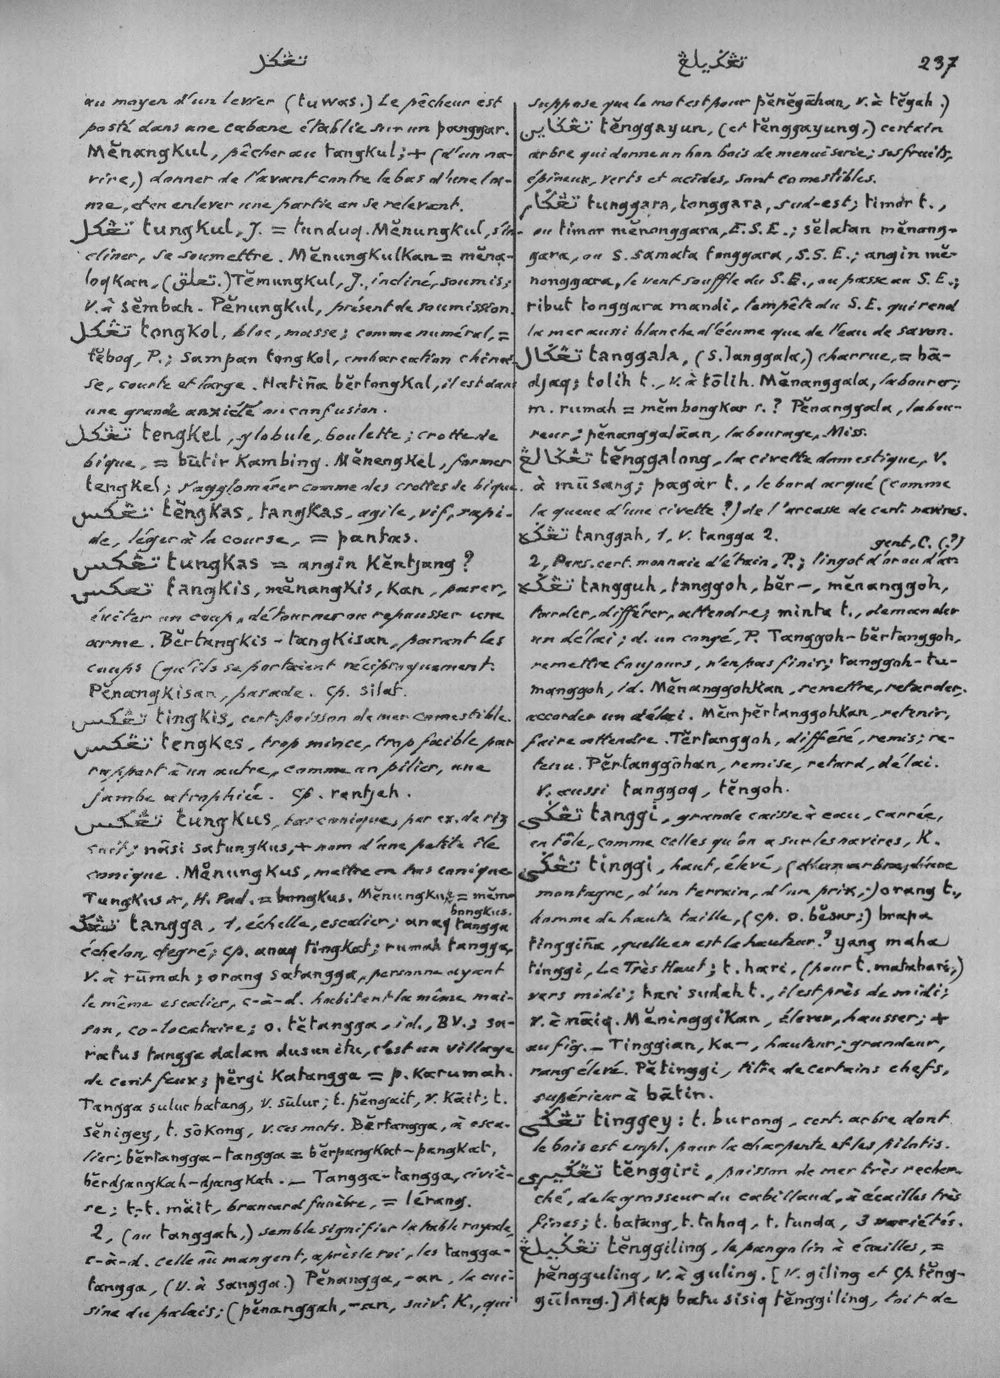 تڠکل
تڠݢيليڠ
237
au moyen d'un levier (tuwas.) Le pêcheur est
posté dans une cabane établie sur un panggar.
Mĕnangkul, pêcher au tangkul; + (d'un na-
vire,) donner de l'avant contre le bas d'une la-
me, et en enlever une partie en se relevant.
تڠکل tungkul, J. = tunduq. Mĕnungkul, s'in-
cliner, se soumettre. Mĕnungkulkan = mĕnga-
loqkan, (تعلق.) Tĕmungkul, J., incliné, soumis;
V. à sĕmbah. Pĕnungkul, présent de soumission.
تڠکل tongkol, bloc, masse; comme numéral, =
tĕboq, P.; sampan tongkol, embarcation chinoi-
se, courte et large. Hatiña bĕrtongkol, il est dans
une grande anxiété ou confusion.
تڠکل tengkel, globule, boulette; crotte de
bique, = būtir kambing. Mĕnengkel, former
tengkel; s'agglomérer comme des crottes de bique.
تڠکس tĕngkas, tangkas, agile, vif, rapi-
de, léger à la course, = pantas.
تڠکس tungkas = angin kĕntjang ?
تڠکس tangkis, mĕnangkis, kan, parer,
éviter un coup, détourner ou repousser une
arme. Bĕrtangkis-tangkisan, parant les
coups (qu'ils se portaient réciproquement.
Pĕnangkisan, parade. Cp. silat.
تڠکس tingkis, cert. poisson de mer comestible.
تڠکس tengkes, trop mince, trop faible par
rapport à un autre, comme un pilier, une
jambe atrophiée. Cp. rentjeh.
تڠکس tungkus, tas conique, par ex. de riz
cuit; nāsi satungkus, + nom d'une petite île
conique. Mĕnungkus, mettre en tas conique
Tungkus +, H. Pad. = bongkus. Mĕnungkus = mĕm-
bongkus.
تڠݢ tangga, 1, échelle, escalier; anaq tangga
échelon, degré; cp. anaq tingkat; rumah tangga,
V. à rūmah; orang satangga, personne ayant
le même escalier, c-à-d. habitent la même mai-
son, co-locataire; o. tĕtangga, id., BV.; sa-
ratus tangga dalam dusun itu, c'est un village
de cent feux; pĕrgi katangga = p. karumah.
Tangga sulur batang, V. sūlur; t. pĕngait, V. kāit; t.
sĕnigey, t. sōkong, V. ces mots. Bĕrtangga, à esca-
lier; bĕrtangga-tangga = bĕrpangkat-pangkat,
bĕrdjangkah-djangkah. _ Tangga-tangga, civiè-
re; t.-t. māit, brancard funèbre, = lérang.
2, (ou tanggah,) semble signifier la table royale,
c-à-d. celle où mangent, après le roi, les tangga-
tangga, (V. à sangga.) Pĕnangga, -an, la cui-
sine du palais; (pĕnanggah, -an, suiv. K., qui
suppose que le mot est pour pĕnĕgāhan, V. à tĕgah.)
تڠݢاين tĕnggayun, (et tĕnggayung,) certain
arbre qui donne un bon bois de menuiserie; ses fruits,
épineux, verts et acides, sont comestibles.
تڠݢار tunggara, tonggara, sud-est; timor t.,
ou timor mĕnonggara, E.S.E.; sĕlatan mĕnong-
gara, ou S. samata tonggara, S.S.E.; angin mĕ-
nonggara, le vent souffle du S.E., ou passe au S.E.;
ribut tonggara mandi, tempête du S.E. qui rend
la mer aussi blanche d'écume que de l'eau de savon.
تڠݢال tanggala, (S. langgala,) charrue, = bā-
djaq; tolih t., V. à tōlih. Mĕnanggala, labourer;
m. rumah = mĕmbongkar r. ? Pĕnanggala, labou-
reur; pĕnanggalāan, labourage, Miss.
تڠݢالڠ tĕnggalong, la civette domestique, V.
à mūsang; pagar t., le bord arqué (comme
la queue d'une civette ?) de l'arcasse de cert. navires.
تڠݢه tanggah, 1, V. tangga 2.
gent, C. (?)
2, Pers. cert. monnaie d'étain, P.; lingot d'or ou d'ar-
تڠݢه tangguh, tanggoh, bĕr-, mĕnanggoh,
tarder, différer, attendre; minta t., demander
un délai; d. un congé, P. Tanggoh-bĕrtanggoh,
remettre toujours, n'en pas finir; tanggoh-tu-
manggoh, id. Mĕnanggohkan, remettre, retarder,
accorder un délai. Mĕmpĕrtanggohkan, retenir,
faire attendre. Tĕrtanggoh, différé, remis; re-
tenu. Pĕrtanggōhan, remise, retard, délai.
V. aussi tanggoq, tĕngoh.
تڠݢي tanggi, grande caisse à eau, carrée,
en tôle, comme celles qu'on a sur les navires, K.
تڠݢي tinggi, haut, élevé, (d'un arbre, d'une
montagne, d'un terrain, d'un prix;) orang t.,
homme de haute taille, (cp. o. bĕsar;) brapa
tinggiña, quelle en est la hauteur? yang maha
tinggi, Le Très Haut; t. hari, (pour t. matahari,)
vers midi; hari sudah t., il est près de midi;
V. à nāiq. Mĕninggikan, élever, hausser; +
au fig. _ Tinggian, ka-, hauteur; grandeur,
rang élevé. Pĕtinggi, titre de certains chefs,
supérieur à bātin.
تڠݢي tinggey: t. burong, cert. arbre dont
le bois est empl. pour la charpente et les pilotis.
تڠݢيري tĕnggiri, poisson de mer très recher-
ché, de la grosseur du cabillaud, à écailles très
fines; t. batang, t. tohoq, t. tunda, 3 variétés.
تڠݢيليڠ tĕnggiling, le pangolin à écailles, =
pĕngguling, V. à guling. [V. giling et cp. tĕng-
gūlang.] Atap batu sisiq tĕnggiling, toit de